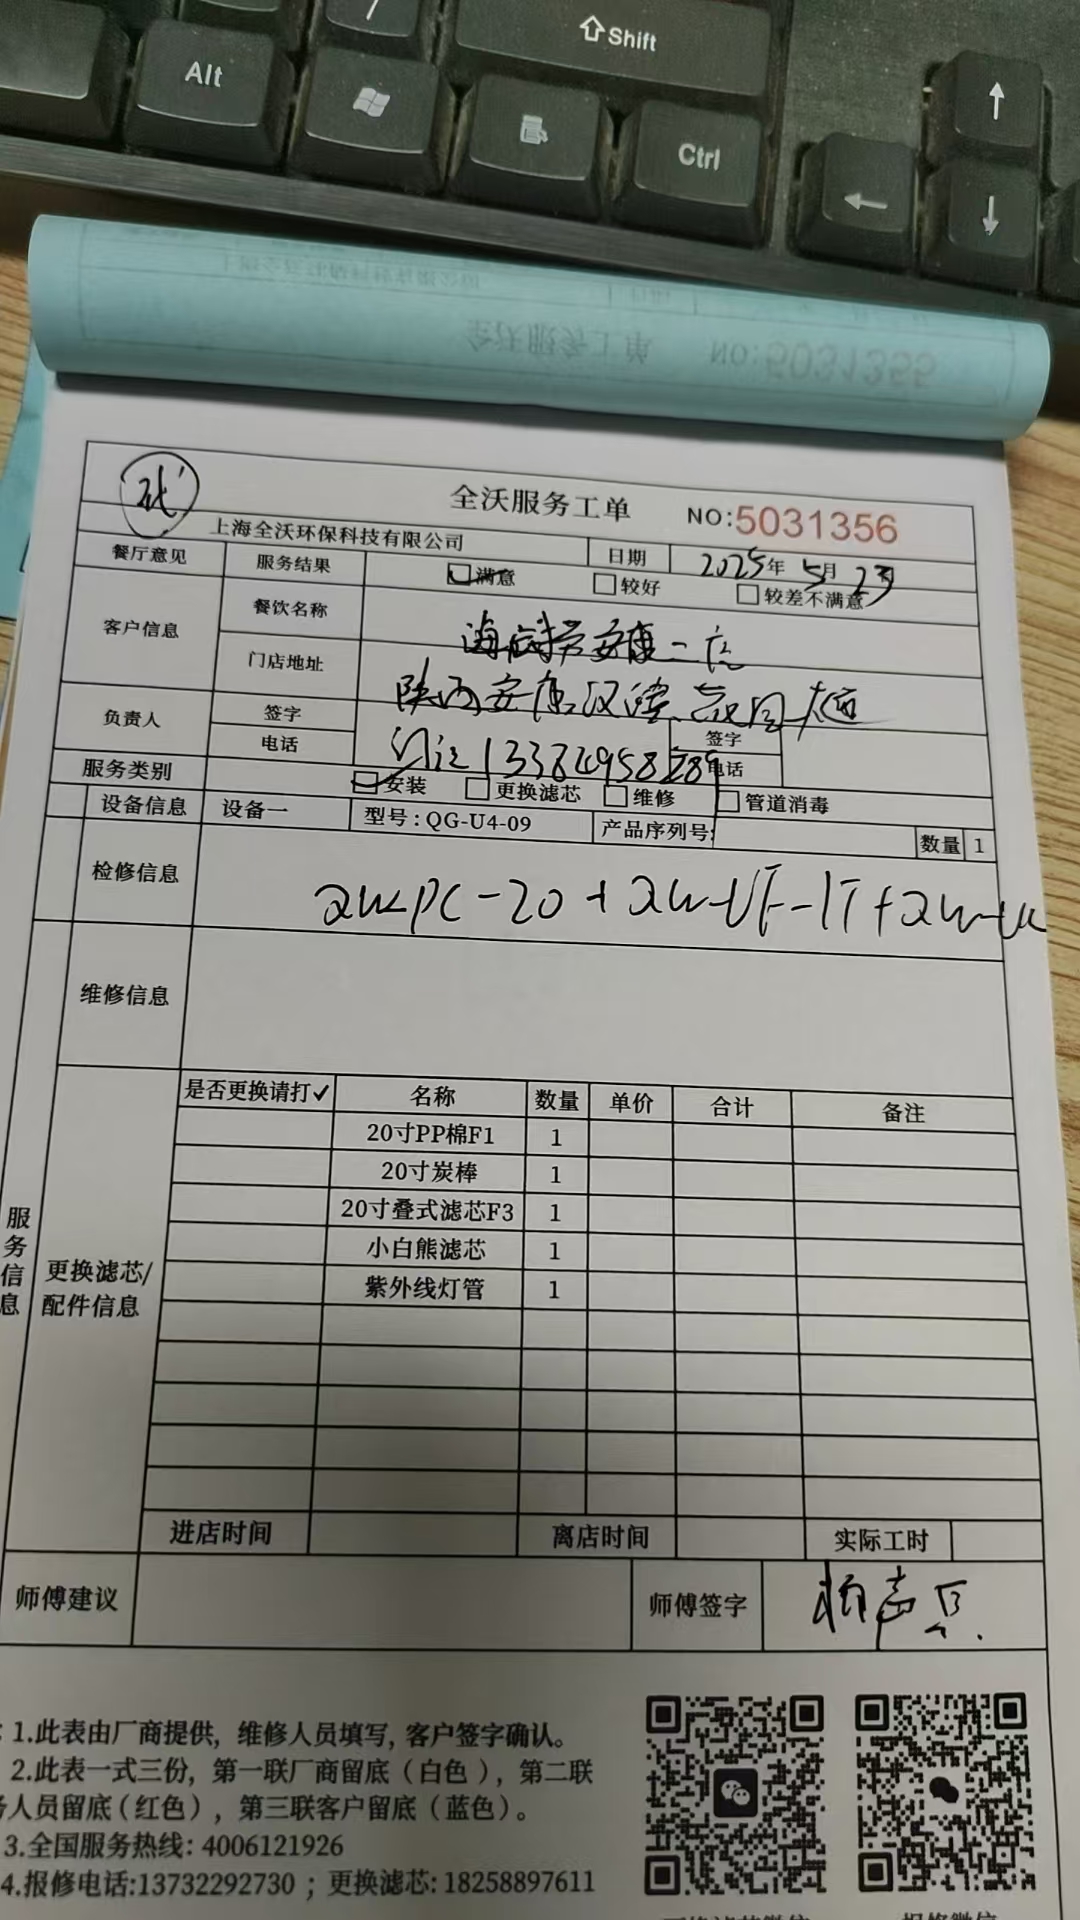 Shift
Alt
Ctrl
全沃服务工单 NO:5031355
全沃服务工单 NO:5031356
上海全沃环保科技有限公司 日期 2025年5月23
餐厅意见 服务结果 满意 较好 较差不满意
客户信息 餐饮名称 安康二店
门店地址 陕西安康汉滨
负责人 签字 签字
电话 13384958289 电话
服务类别 安装 更换滤芯 维修 管道消毒
设备信息 设备一 型号:QG-U4-09 产品序列号: 数量 1
检修信息 -20+2W-UF-1T+2W-
维修信息
服务信息
更换滤芯/配件信息
是否更换请打✓ 名称 数量 单价 合计 备注
20寸PP棉F1 1
20寸炭棒 1
20寸叠式滤芯F3 1
小白熊滤芯 1
紫外线灯管 1
进店时间 离店时间 实际工时
师傅建议 师傅签字
:1.此表由厂商提供,维修人员填写,客户签字确认。
2.此表一式三份,第一联厂商留底(白色),第二联
务人员留底(红色),第三联客户留底(蓝色)。
3.全国服务热线:4006121926
4.报修电话:13732292730;更换滤芯:18258897611